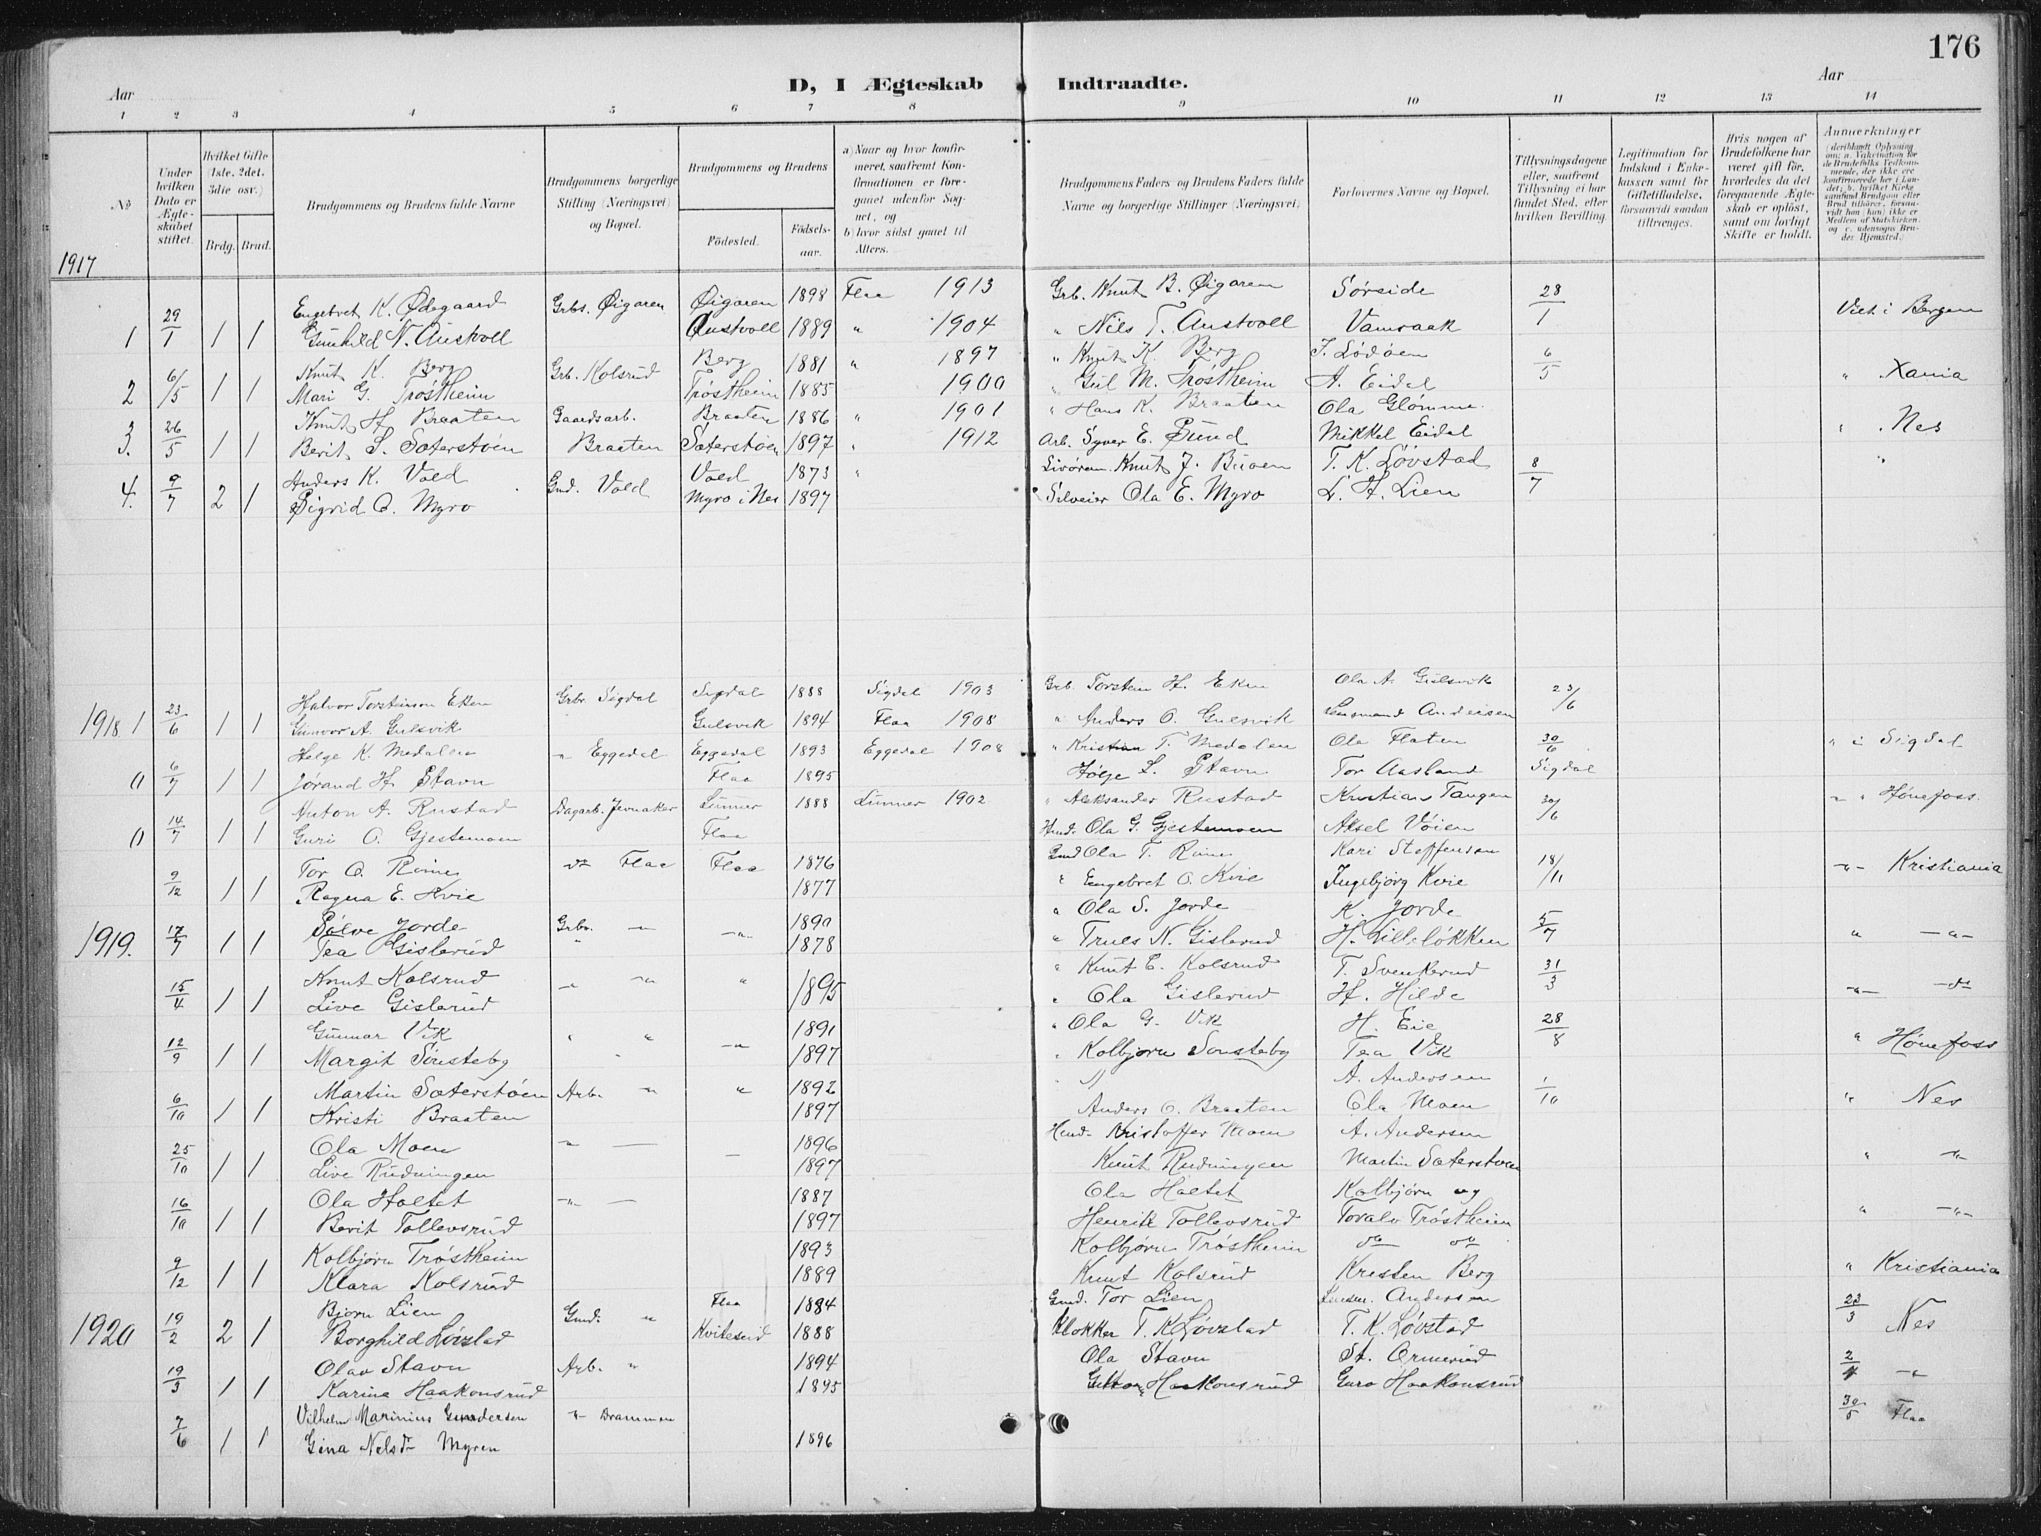 176
D, I Ægteskab Indtraadte.
Aar Aar
1 2 3 4 5 6 7 8 9 10 11 12 13 14
No.
Under hvilken Dato er Ægteskabet stiftet.
Hvilket Gifte (1ste, 2det, 3die osv.)
Brdg. Brud.
Brudgommens og Brudens fulde Navne
Brudgommens borgerlige Stilling (Næringsvei) og Bopæl.
Brudgommens og Brudens
Fødested. Fødselsaar.
a) Naar og hvor konfirmeret, saafremt Konfirmationen er foregaaet udenfor Sognet, og
b) hvor sidst gaaet til Alters.
Brudgommens Faders og Brudens Faders fulde Navne og borgerlige Stillinger (Næringsvei)
Forlovernes Navne og Bopæl.
Tillysningsdagene eller, saafremt Tillysning ei har fundet Sted, efter hvilken Bevilling.
Legitimation for Indskud i Enkekassen samt for Giftetilladelse, forsaavidt saadan tiltrænges.
Hvis nogen af Brudefolkene har været gift før, hvorledes da det foregaaende Ægteskab er opløst, samt om lovligt Skifte er holdt.
Anmerkninger
(deriblandt Oplysning om: a. Vakcination for de Brudefolks Vedkommende, der ikke ere konfirmerede her i Landet; b. hvilket Kirkesamfund Brudgom eller Brud tilhører, forsaavidt han (hun) ikke er Medlem af Statskirken, og c. udensogns Brudes Hjemsted.)
1917
Engebret K. Ødegaard Grbs. Øigaren Øigaren 1898 Flaa 1913 Grb. Knut B. Øigaren Sørside 28/1 Viet i Bergen
1 29/1 1 1 Gunhild N. Austvoll Austvoll 1889 " 1904 " Nils T. Austvoll Vamraak
Knut K. Berg Grb. Kolsrud Berg 1881 " 1897 " Knut K. Berg J. Lødøen 6/5
2 6/5 1 1 Mari G. Trøstheim Trøstheim 1885 1900 " Gul M. Trøstheim A. Eidal " Xania
Knut H. Braaten Gaardsarb. Braaten 1886 " 1901 " Hans K. Braaten Ola Glømme
3. 26/5 1 1 Berit S. Sæterstøen Braaten Sæterstøen 1897 " 1912 Arb. Syver E. Sund Mikkel Eidal " Nes
Anders K. Vold Gmd. Vold Vold 1873 " Knut J. Buoen T. K. Løvstad 8/7 "
4. 9/7 2 1 Sigrid O. Myro Myro i Nes 1897 Ola E. Myro L. H. Lien
Halvor Torsteinson Eken Grbr Sigdal Sigdal 1888 Sigdal 1903 Grb. Torstein H. Eken Ola A. Gulsvik 23/6
1918 1 23/6 1 1 Gunvor A. Gulsvik Gulsvik 1894 Flaa 1908 " Anders O. Gulsvik Lensmand Andersen
Helge K. Medalen " Eggedal Eggedal 1893 Eggedal 1908 " Kristian T. Medalen Ola Flaten 30/6 " i Sigdal
0 6/7 1 1 Jørand H. Stavn Flaa 1895 Hølje S. Stavn Tor Aasland Sigdal
Anton A. Rustad Dagarb. Jevnaker Lunner 1888 Lunner 1902 " Aleksander Rustad Kristian Tangen 30/6 " " Hønefoss
0 14/7 1 1 Guri O. Gjestemoen Flaa Hmd. Ola G. Gjestemoen Aksel Vøien
Tor O. Roine do Flaa Flaa 1876 Gmd Ola T. Roine Kari Steffensen 18/11 " Kristiania
9/12 1 1 Ragna E. Kvie 1877 " Engebret O. Kvie Ingebjørg Kvie
Sølve Jorde Grbr. " " 1890 " Ola S. Jorde K. Jorde 5/7
1919. 17/7 1 1 Tea Gislerud " 1878 " Truls N. Gislerud H. Lilleløkken " "
Knut Kolsrud " " " 1895 " Knut E. Kolsrud T. Svenkerud 31/3
15/4 1 1 Live Gislerud " Ola Gislerud H. Hilde " do
Gunnar Vik " " 1891 " Ola G. Vik H. Eie 28/8 " Hønefoss
12/9 1 1 Margit Sønsteby " 1897 " Kolbjørn Sønsteby Tea Vik
Martin Sæterstøen Arb. " " 1892 " A. Andersen 1/10
6/10 1 1 Kristi Braaten 1897 Anders O. Braaten Ola Moen " Nes
Ola Moen " 1896 Hmd. Kristoffer Moen A. Andersen
25/10 1 1 Live Rudningen 1897 Knut Rudningen Martin Sæterstøen " "
Ola Holtet " 1887 Ola Holtet Kolbjørn og
16/10 1 1 Berit Tollevsrud 1897 Henrik Tollevsrud Toralv Trøstheim " "
Kolbjørn Trøstheim 1893 Kolbjørn Trøstheim do do
9/12 1 1 Klara Kolsrud 1889 Knut Kolsrud Kresten Berg " Kristiania
Bjørn Lien Gmd. " Flaa 1884 Gmd. Tor Lien Lensm. Andersen 23/3 Nes
1920 19/2 2 1 Borghild Løvstad Kviteseid 1888 Klokker T. K. Løvstad T. K. Løvstad
Olav Stavn Arb. " 1894 Ola Stavn St. Ormerud 2/4 "
19/3 1 1 Karina Haakonsrud 1895 Haakonsrud Guro Haakonsrud
Vilhelm Marinius Gundersen " Drammen 30/5 Flaa
7/6 1 1 Gina Nelsd. Myren 1896